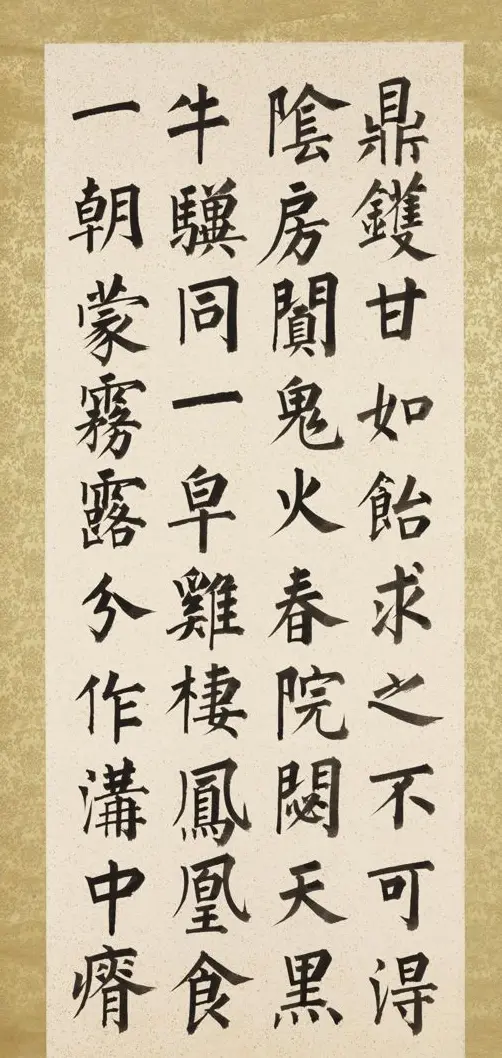 鼎鑊甘如飴求之不可淂
隂房闐鬼火春院閟天黑
牛驥同一皁雞棲鳳凰食
一朝蒙霧露分作溝中瘠